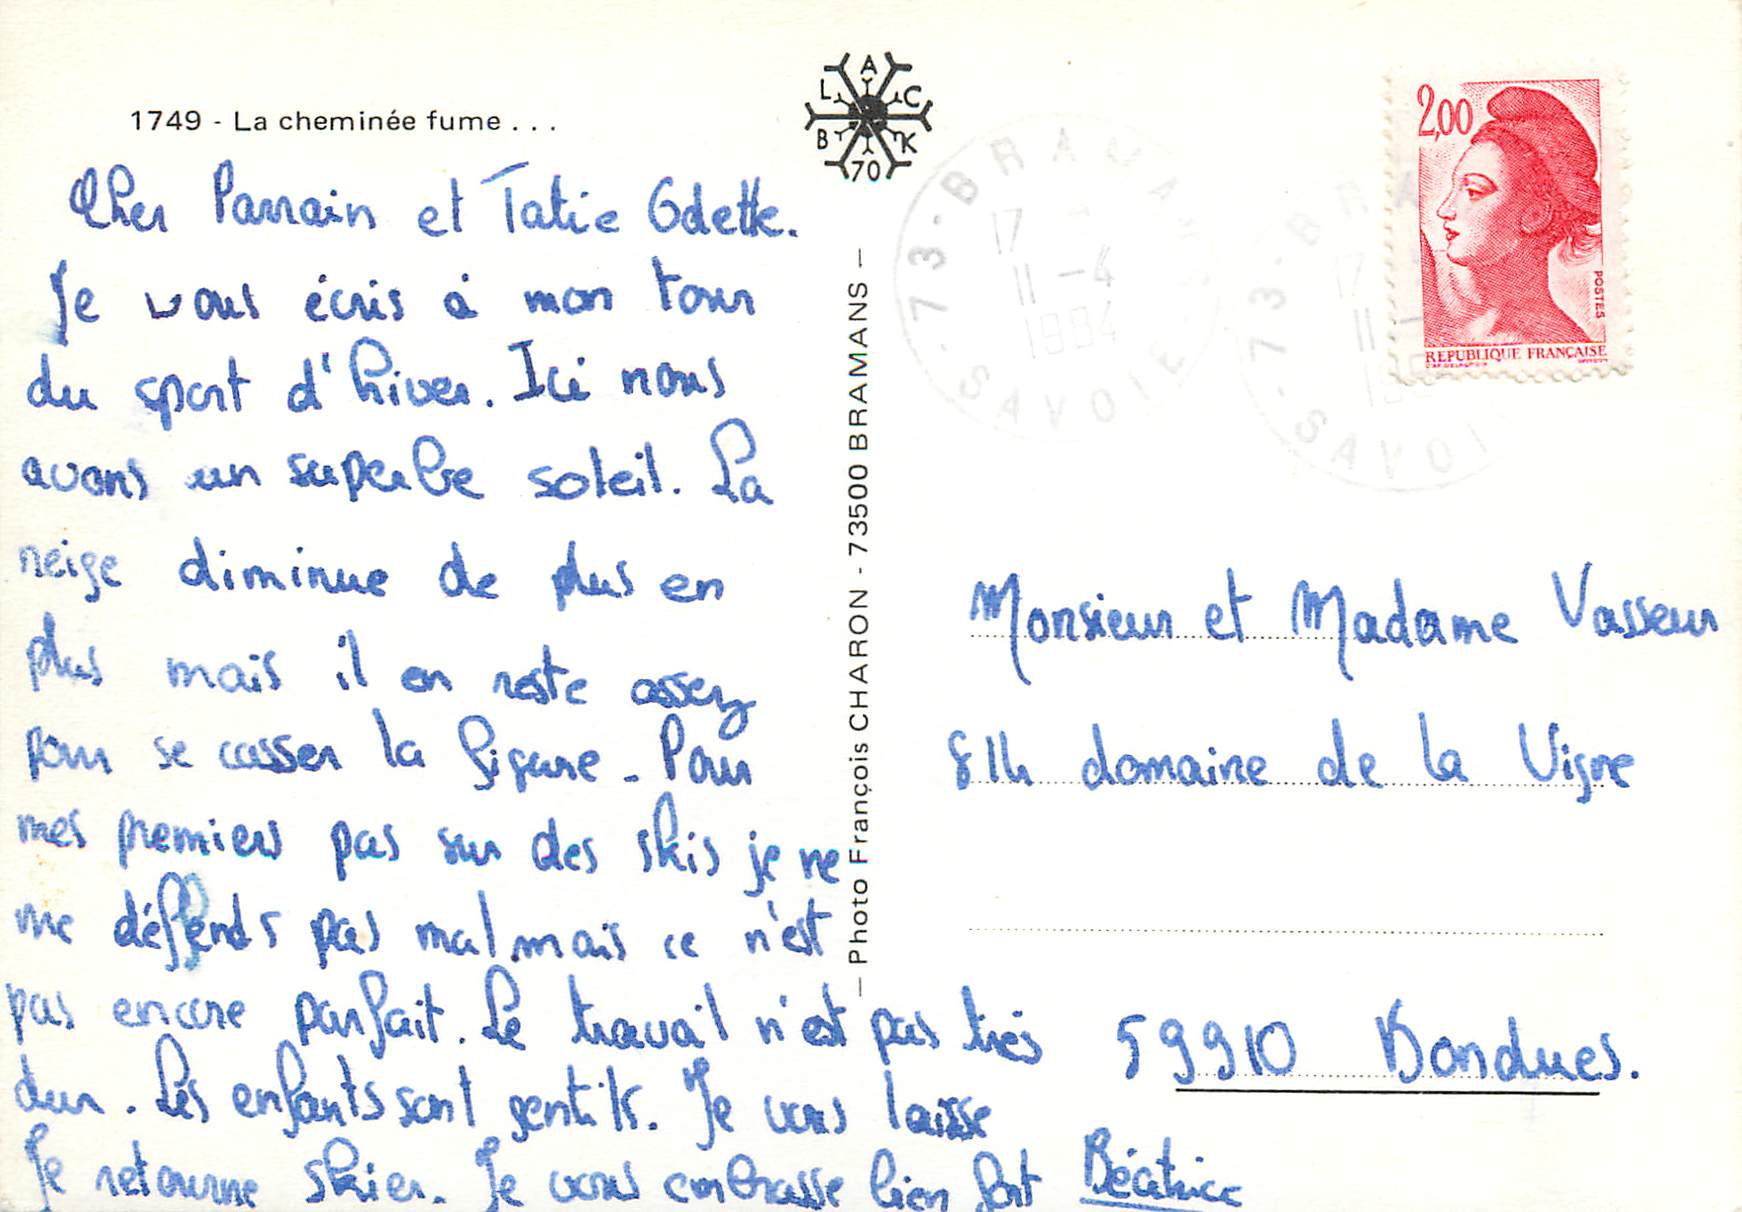 1749 - La cheminée fume . . .
BLACK
70
Cher Parrain et Tatie Odette.
Je vous écris à mon tour
du sport d'hiver. Ici nous
avons un superbe soleil. La
neige diminue de plus en
plus mais il en reste assez
pour se casser la figure - Pour
mes premiers pas sur des skis je ne
me déffends pas mal mais ce n'est
pas encore parfait. Le travail n'est pas très
dur. Les enfants sont gentils. Je vous laisse
Je retourne skier. Je vous embrasse bien fort Béatrice
— Photo François CHARON - 73500 BRAMANS —
73 - BRAMANS
17
11 - 4
1984
SAVOIE
73 - BRA
17
11 -
SAVOI
2,00
POSTES
REPUBLIQUE FRANÇAISE
Monsieur et Madame Vasseur
814 domaine de la Vigne
59910 Bondues.